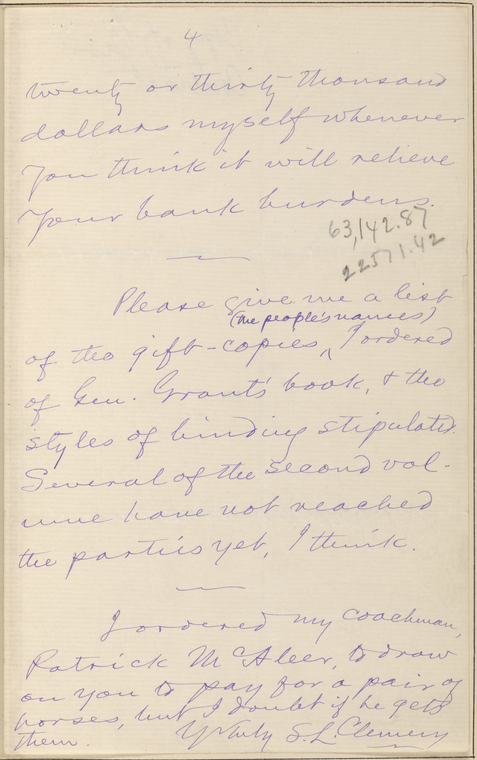 4
twenty or thirty thousand
dollars myself whenever
you think it will relieve
your bank burdens.
63,142.87
22571.42
Please give me a list
(the people's names)
of the gift-copies, ^ I ordered
of Gen. Grant's book, & the
styles of binding stipulated.
Several of the second vol-
ume have not reached
the parties yet, I think.
I ordered my coachman,
Patrick McAleer, to draw
on you to pay for a pair of
horses, but I doubt if he gets
them. Yrs truly S.L. Clemens